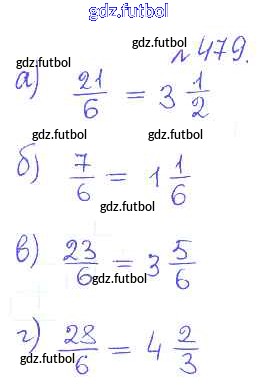 gdz.futbol
gdz.futbol
№ 479.
gdz.futbol
а) 21/6 = 3 1/2
gdz.futbol
gdz.futbol gdz.futbol
б) 7/6 = 1 1/6
gdz.futbol
gdz.futbol
в) 23/6 = 3 5/6
gdz.futbol
г) 28/6 = 4 2/3
gdz.futbol